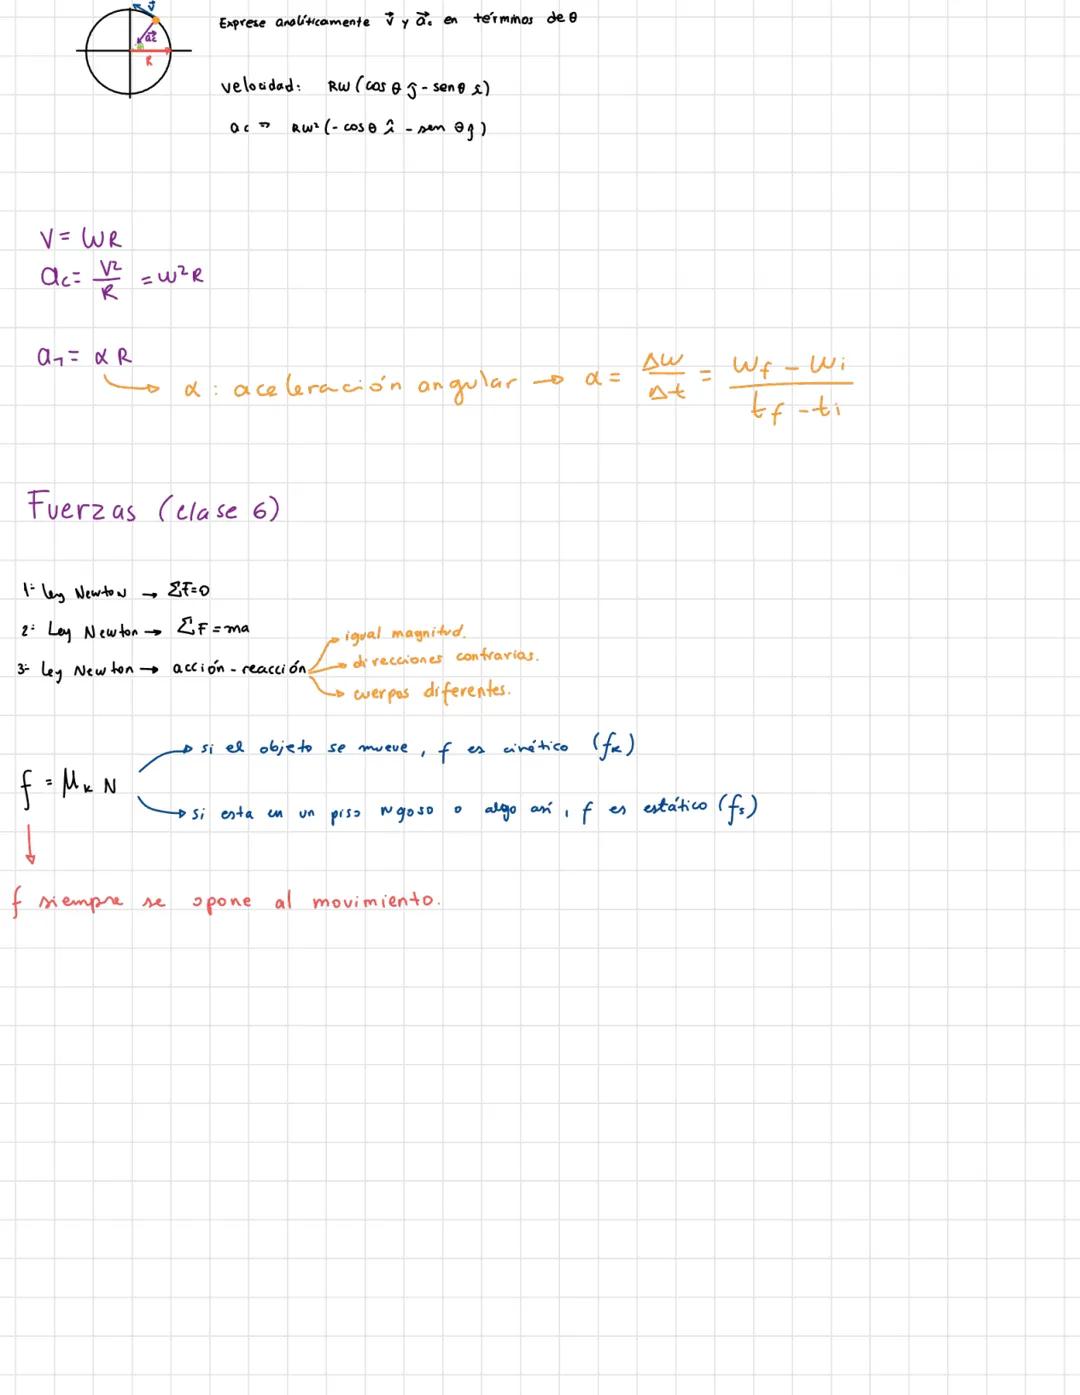 v⃗
a⃗c
R
Exprese analíticamente v⃗ y a⃗c en términos de θ
velocidad: RW (cos θ ĵ - senθ î)
ac → RW² (- cos θ î - sen θ ĵ)
V = WR
ac = V²/R = W²R
aT = α R
α : aceleración angular → α = ΔW/Δt = (Wf - Wi)/(tf - ti)
Fuerzas (clase 6)
1º ley Newton → ΣF=0
2º Ley Newton → ΣF = ma
igual magnitud.
3º ley Newton → acción - reacción
direcciones contrarias.
cuerpos diferentes.
si el objeto se mueve, f es cinético (fk)
f = μk N
si esta en un piso rugoso o algo así, f es estático (fs)
f siempre se opone al movimiento.